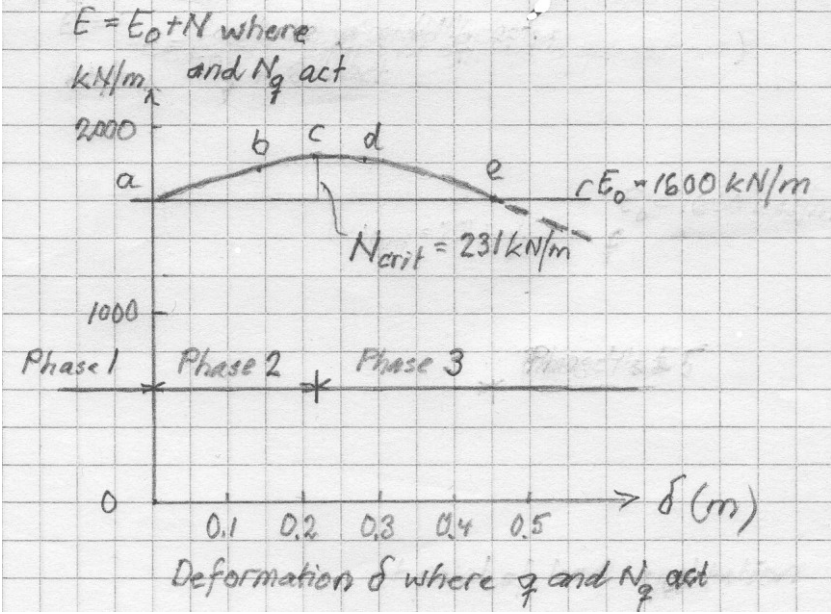 E = E₀+N where
kN/m, and N_q act
2000
a b c d e
E₀ = 1600 kN/m
N_crit = 231 kN/m
1000
Phase 1 Phase 2 Phase 3
0 δ (m)
0.1 0.2 0.3 0.4 0.5
Deformation δ where q and N_q act